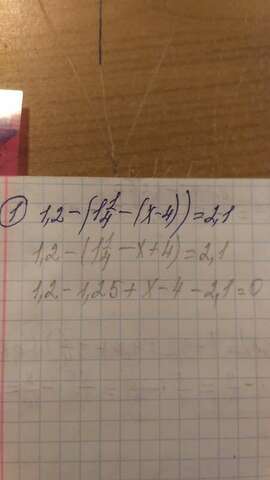 ① 1,2-(1 1/4-(x-4))=2,1
1,2-(1 1/4-x+4)=2,1
1,2-1,25+x-4-2,1=0